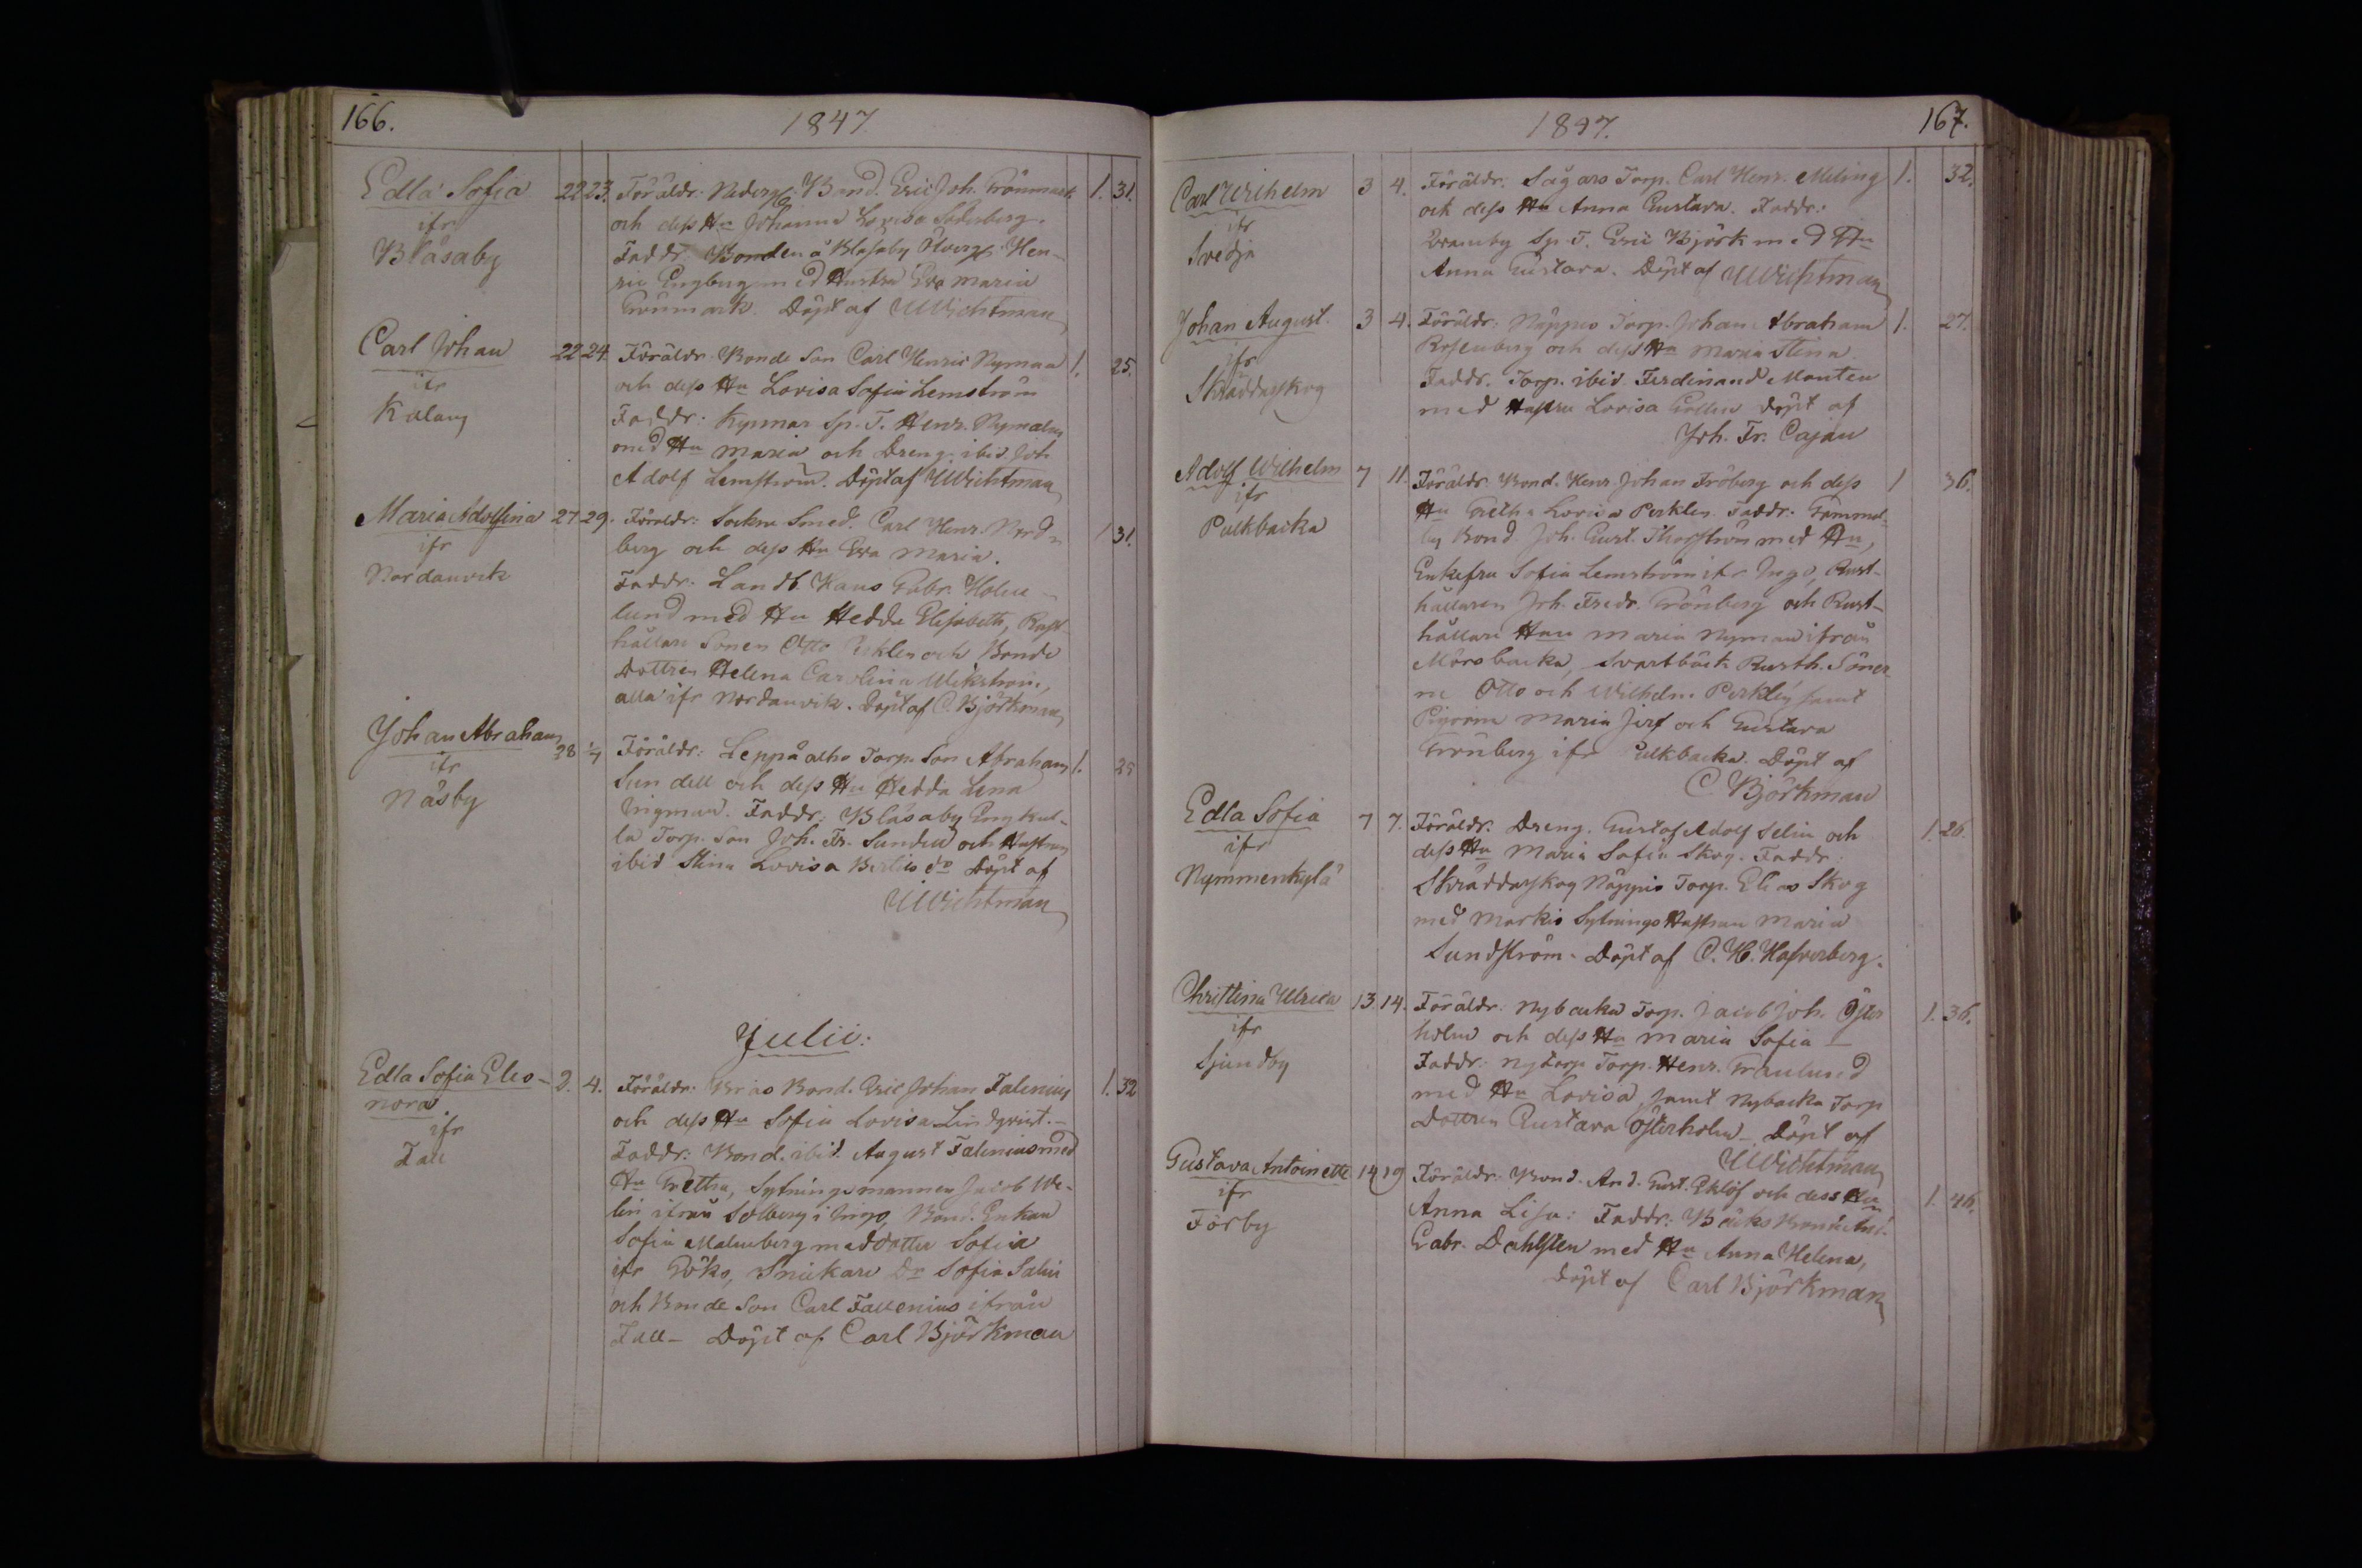 166.
1847
Edla Sofia 22 23. Föräldr. Bond. Eric Joh. Grönmark 1. 31.
ifr och dess Hu Johanna Lovisa Söderberg.
Blåsaby Faddr. Bonden å Blåsaby Hen-
ric Engberg med Hustru Eva Maria
Grönmark. Döpt af UWichtman
Carl Johan 22 24. Föräldr. Bonde Son Carl Henric Nyman 1. 25.
ifr och dess Hu Lovisa Sofia Lemström
Faddr: Sp. T. Henr.
med Hu Maria och Dreng. ibid. Joh
Adolf Lemström. Döpt af UWichtman
Maria Adolfina 27 29. Föräldr: Sockne Smed. Carl Henr. Nord- 1 31.
ifr berg och dess Hu Eva Maria.
Nordanvik Faddr. Landb. Hans Gabr. Holm-
lund med Hu Hedda Elisabeth, Rust-
hållare Sonen Otto Perklen och Bonde
Dottren Helena Carolina Wikström,
alla ifr Nordanvik. Döpt af C. Björkman
Johan Abraham 28 1/7 Föräldr: Leppäalho Torp. Son Abraham 1. 25
ifr Sundell och dess Hu Hedda Lena
Näsby Ingman. Faddr: Blåsaby Engkul-
la Torp. Son Joh. Fr. Sundell och Hustrun
ibid Stina Lovisa do Döpt af
UWichtman
Julii:
Edla Sofia Eleo- 2. 4. Föräldr: Bond. Eric Johan Falenius 1. 32
nora och dess Hu Sofia Lovisa Lindqvist.-
ifr Faddr: Bond. ibid. August Falenius med
Fall Hu Gretha, Sytningsmannen Jacob We-
lin ifrån Solberg i Ingo, Bond. Enkan
Sofia Malmberg med dotter Sofia
ifr Göks, Snickare Dr Sofia Salin
och Bonde Son Carl Fallenius ifrån
Fall- Döpt af Carl Björkman
1847.
167.
Carl Wilhelm 3 4. Föräldr. Sågars Torp. Carl Henr. Meling 1. 32.
ifr och dess Hu Anna Gustava. Faddr.:
Svedja Sp. T. Eric Björk med Hu
Anna Gustava. Döpt af UWichtman
Johan August. 3 4. Föräldr: Näppis Torp. Johan Abraham 1. 27.
ifr Rosenberg och dess Hu Maria Stina.
Skräddarskog Faddr. Torp. ibid. Ferdinand Manten
med Hustru Lovisa döpt af
Joh. Fr. Cajan
Adolf Wilhelm 7 11. Föräldr. Bond. Henr. Johan Fröberg och dess 1 36.
ifr Hu Gretha Lovisa Perklen. Faddr. Gammel-
Pulkbacka by Bond. Joh. Gust. Thorström med Hu,
Enkefru Sofia Lemström ifr Ingo, Rust-
hållaren Joh. Fredr. Grönberg och Rust-
hållare Hun Maria Nyman ifrån
Mårsbacka, Svartbäck Rusth. Söner-
ne Otto och Wilhelm Perklén samt
Pigorna Maria Jirf och Gustava
Grönberg ifr Pulkbacka. Döpt af
C. Björkman
Edla Sofia 7 7. Föräldr. Dreng. Gustaf Adolf Selin och 1. 26.
ifr dess Hu Maria Sofia Skog. Faddr:
Nymmenkylä Skräddarskog Näppis Torp. Elias Skog
med Markis Sytnings Hustrun Maria
Sundström. Döpt af C. H. Hasverberg.
Christina Ulrica 13. 14. Föräldr: Nybacka Torp. Jacob Joh. Öster 1. 36.
ifr holm och dess Hu Maria Sofia -
Sjundby Faddr: Nytorp Torp. Henr. Granlund
med Hu Lovisa, samt Nybacka Torp
Dottren Gustava Österholm-. Döpt af
UWichtman
Gustava Antoinette 14 19 Föräldr. Bond. And. Gust. Eklöf och dess Hu 1. 46.
ifr Anna Lisa: Faddr: Bäcks Bonde And.
Förby Gabr. Dahlsten med Hu Anna Helena,
Döpt af Carl Björkman